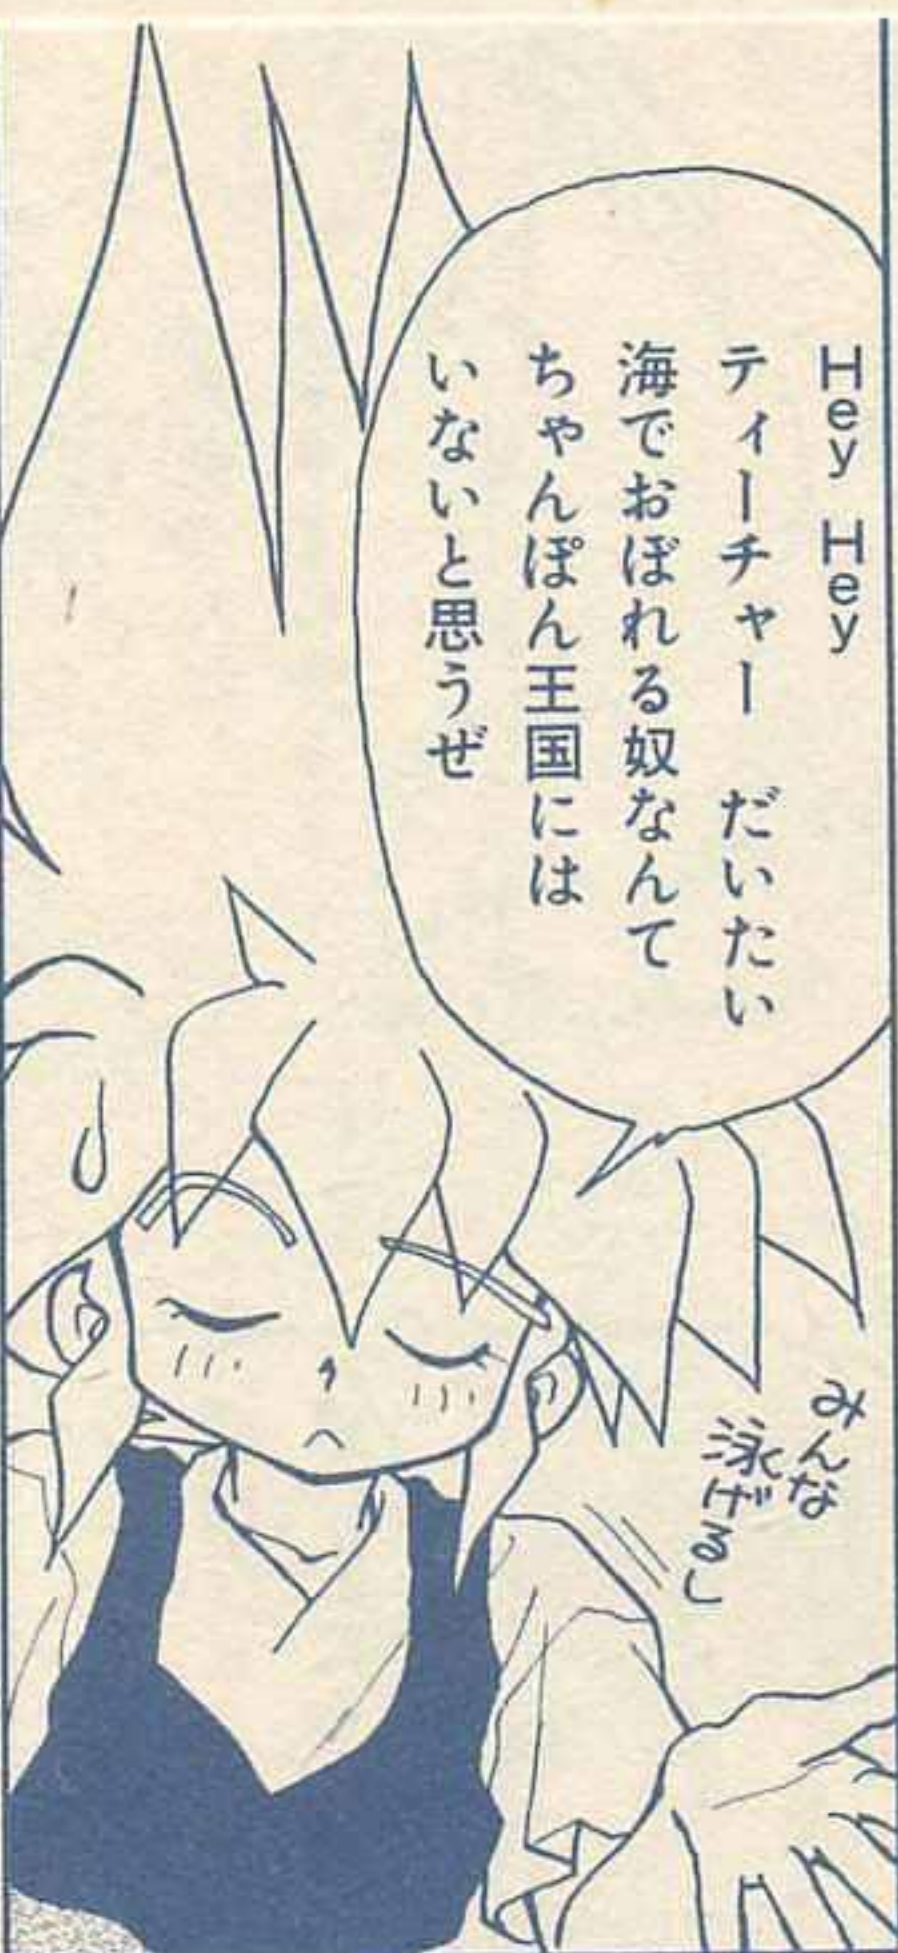 Hey Hey
ティーチャー　だいたい
海でおぼれる奴なんて
ちゃんぽん王国には
いないと思うぜ
みんな
泳げるし